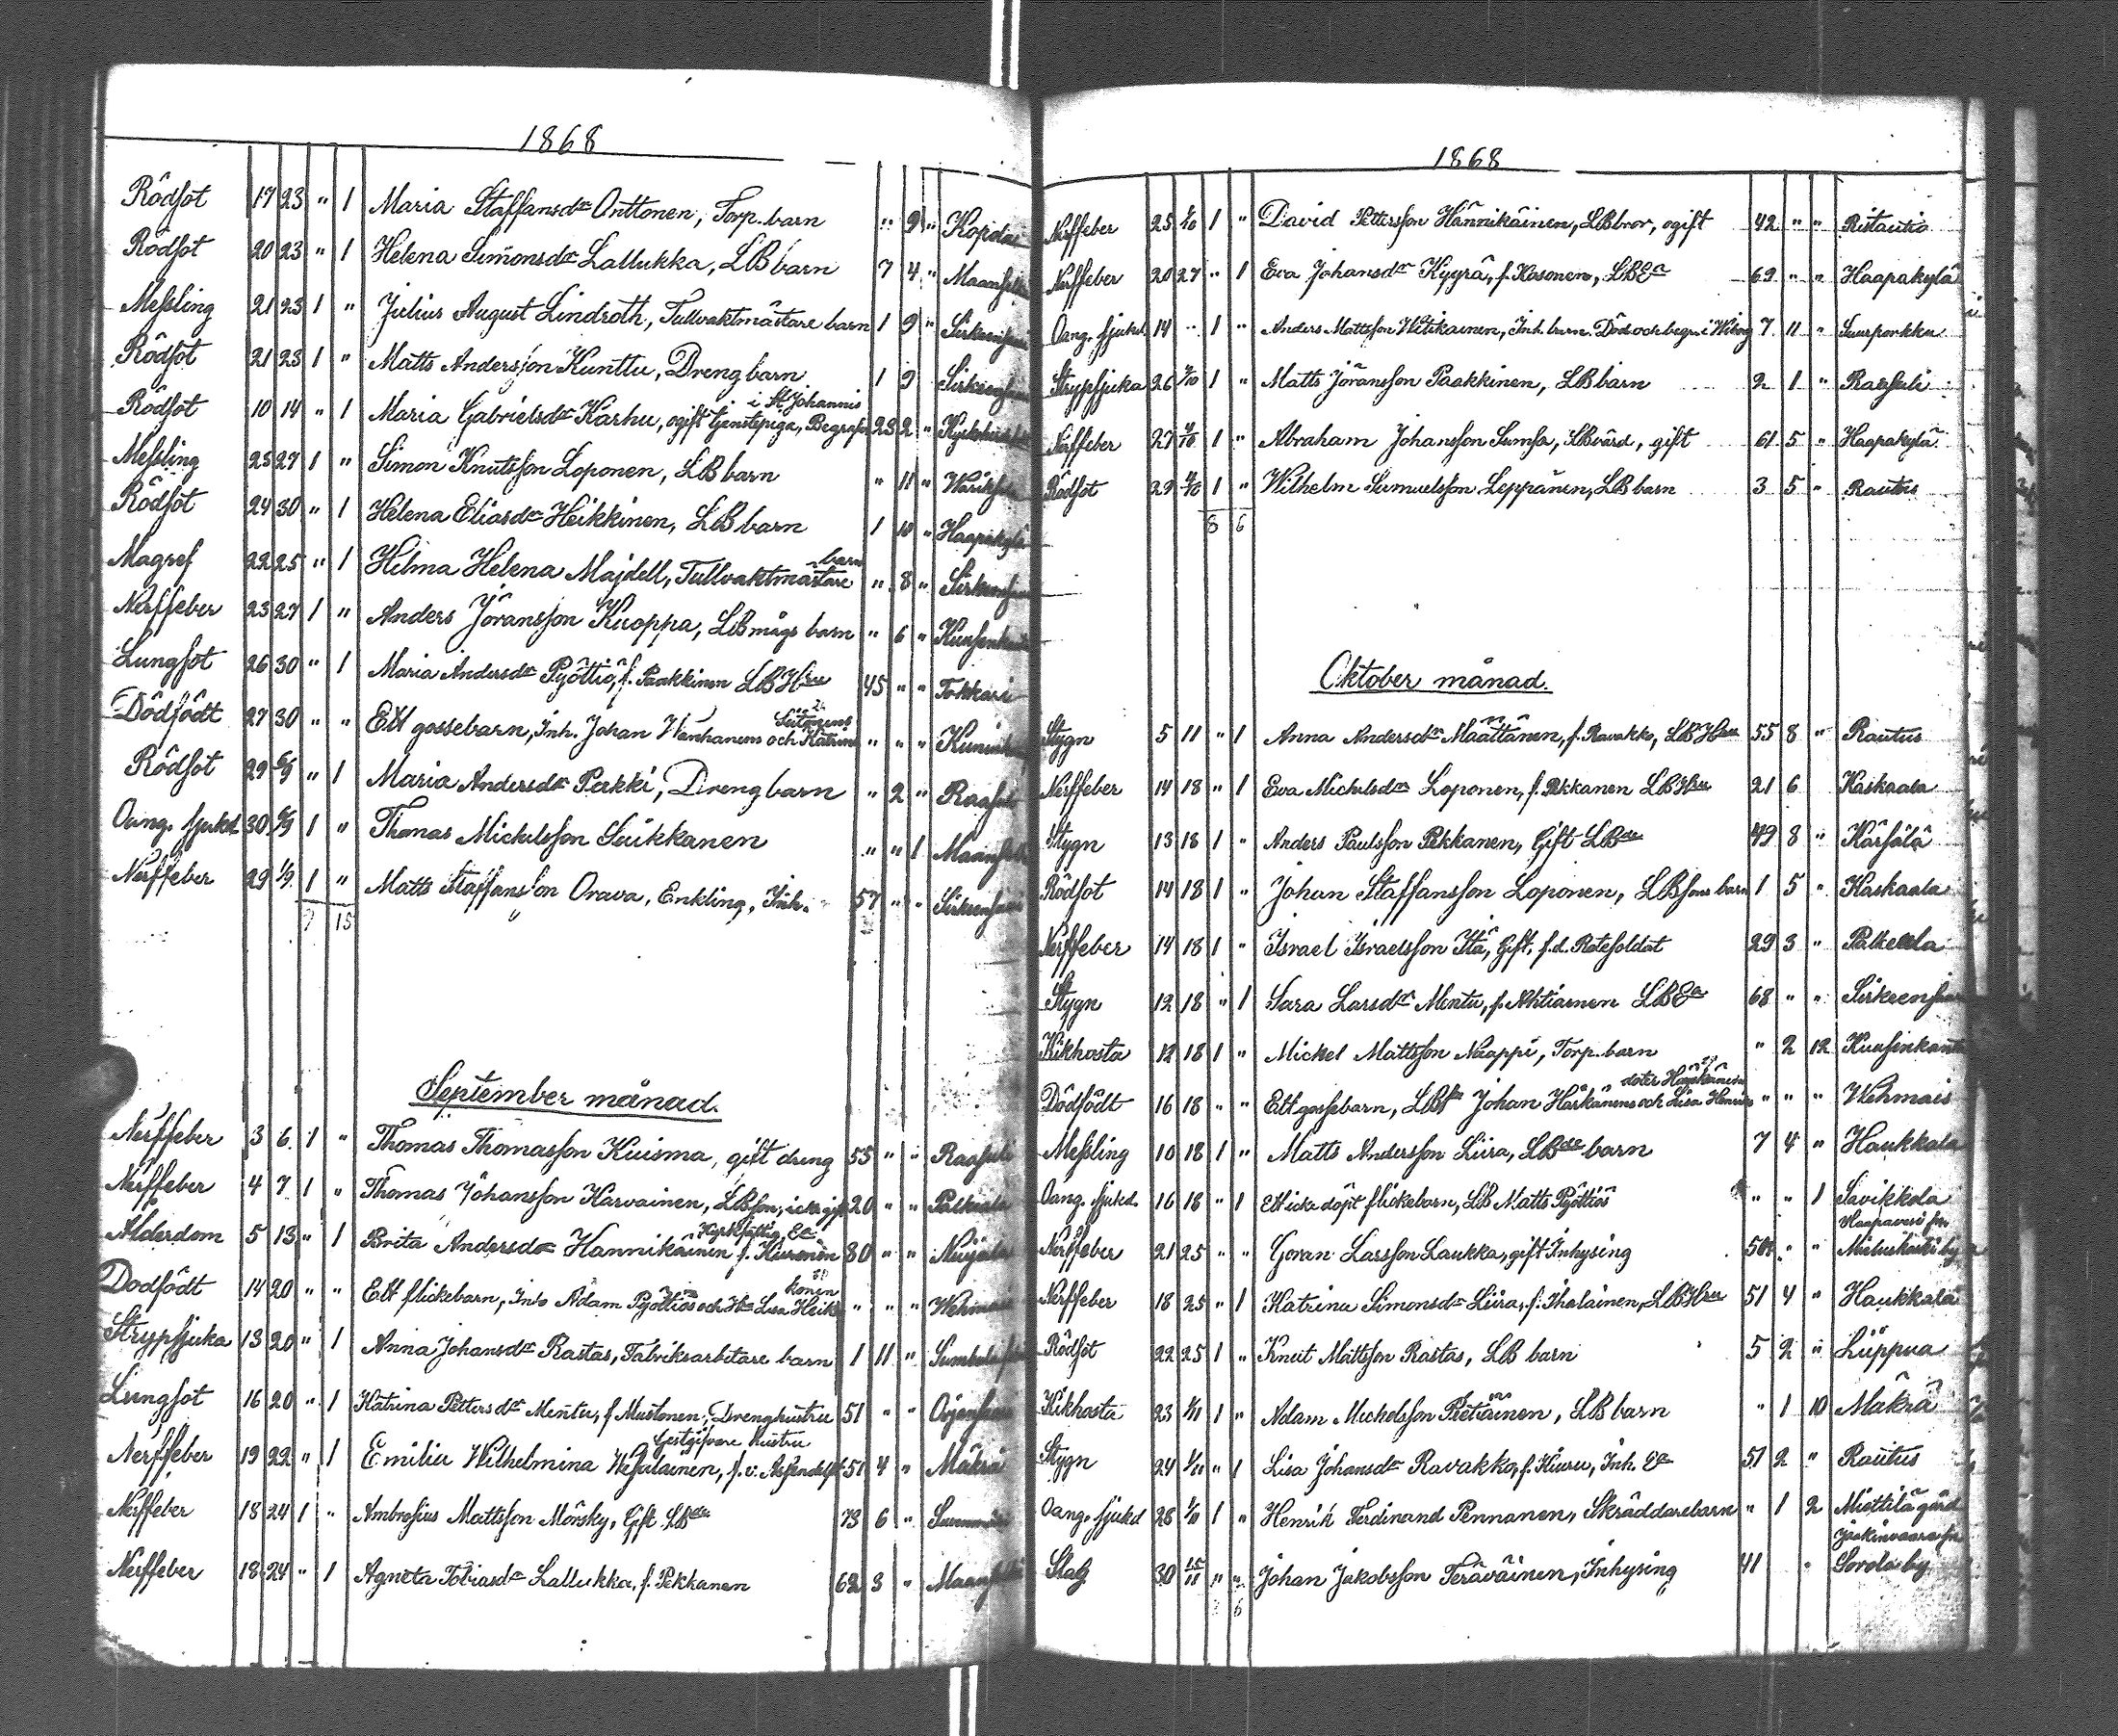 1868
Rödsot 17 23 " 1 Maria Staffansdr Onttonen, Torp. barn " 9 "
Rödsot 20 23 " 1 Helena Simonsdr Lallukka, LB barn 7 4 "
Messling 21 23 1 " Julius August Lindroth, Tullvaktmästare barn 1 9 "
Rödsot 21 23 1 " Matts Andersson Kunttu, Dreng barn 1 9
i St Johannis
Rödsot 10 14 " 1 Maria Gabrielsdr Karhu, ogift tjenstepiga, 23 2 "
Messling 25 27 1 " Simon Knutsson Loponen, LB barn " 11 "
Rödsot 24 30 " 1 Helena Eliasdr Heikkinen, LB barn 1 10 " Haapakylä
barn
Magref 22 25 " 1 Hilma Helena Majdell, Tullvaktmästare " 8 "
Nerffeber 23 27 1 " Anders Jöransson Kuoppa, LB mågs barn " 6 "
Lungsot 26 30 " 1 Maria Andersdr Pyöttiö, f. Paakkinen LB Hru 45 " " Tokkari
Dödfödt 27 30 " " Ett gossebarn, Inh. Johan Wanhanens och Katrina " " "
Rödsot 29 6/9 " 1 Maria Andersdr Pekki, Dreng barn " 2 " Raasuli
Oang. sjukd 30 6/9 1 " Thomas Michelsson Suikkanen " " 1
Nerffeber 29 1/9 1 " Matts Staffansson Orava, Enkling, Inh. 57 " "
7 15
September månad.
Nerffeber 3 6 1 " Thomas Thomasson Kuisma, gift dreng 55 " " Raasuli
Nerffeber 4 7 1 " Thomas Johansson Karvainen, LBson, icke gift 20 " " Palkeala
Alderdom 5 13 " 1 Brita Andersdr Hannikäinen f. 80 " "
Dodfödt 14 20 " " Ett flickebarn, Inhs Adam Pyöttiös och Hs Lisa " " "
Strypsjuka 13 20 " 1 Anna Johansdr Rastas, Fabriksarbetare barn 1 11 "
Lungsot 16 20 " 1 Katrina Pettersdr Mentu, f Mustonen, Drenghustru 51 " "
Gestgifvare hustru
Nerffeber 19 22 " 1 Emilia Wilhelmina Wesalainen, f. v. 51 4 " Mäkrä
Nerffeber 18 24 1 " Ambrosius Mattsson Mörsky, Gift LBde 73 6 "
Nerffeber 18 24 " 1 Agneta Tobiasdr Lallukka, f. Pekkanen 62 3 "
1868
Nerffeber 25 4/10 1 " David Pettersson Hännikäinen, LBbror, ogift 42 " " Ristautio
Nerffeber 20 27 " 1 Eva Johansdr Kyyrä, f. Kosonen, LBEa 69 " " Haapakylä
Oang. sjukd 14 " 1 " Anders Mattsson Inh. barn. Död och begr. i Wiborg 7 11 " Suurporkku
Strypsjuka 26 4/10 1 " Matts Jöransson Paakkinen, LB barn 2 1 " Raasuli
Nerffeber 27 4/10 1 " Abraham Johansson Sumsa, LBvärd, gift 61 5 " Haapakylä
Rödsot 29 4/10 1 " Wilhelm Samuelsson Leppänen, LB barn 3 5 " Rautus
8 6
Oktober månad.
Stygn 5 11 " 1 Anna Andersdr Määttänen, f. Ravakko, LB Hru 55 8 " Rautus
Nerffeber 14 18 " 1 Eva Michelsdr Loponen, f. Pekkanen LB Hru 21 6 Kaskaala
Stygn 13 18 1 " Anders Paulsson Pekkanen, Gift LBde 49 8 " Kärsälä
Rödsot 14 18 1 " Johan Staffansson Loponen, LBsons barn 1 5 " Kaskaala
Nerffeber 14 18 1 " Israel Israelsson Itä, Gift, f.d. Rotesoldat 29 3 " Palkeala
Stygn 12 18 " 1 Sara Larsdr Mentu, f. Ahtiainen LBEa 68 " "
Kikhosta 12 18 1 " Mickel Mattsson Naappi, Torp. barn " 2 12 Kuusenkanta
Dödfödt 16 18 " " Ett gossebarn, Johan Härkänens och Lisa " " " Wehmais
Messling 10 18 1 " Matts Andersson Liira, LBde barn 7 4 " Haukkala
Oang. sjukd. 16 18 " 1 Ett icke döpt flickebarn, LB Matts Pyöttiös " " 1 Savikkola
Nerffeber 21 25 " " Göran Larsson Laukka, gift Inhysing 50 " "
Nerffeber 18 25 " 1 Katrina Simonsdr Liira, f. Ihalainen, LB Hru 51 4 " Haukkala
Rödsot 22 25 1 " Knut Mattsson Rastas, LB barn 5 2 " Liippua
Kikhosta 23 1/11 1 " Adam Michelsson Pietiäinen, LB barn " 1 10 Mäkrä
Stygn 24 1/11 " 1 Lisa Johansdr Ravakko, f. Kiuru, Inh. Ea 51 2 " Rautus
Oang. sjukd 28 1/11 1 " Henrik Ferdinand Pennanen, Skräddarebarn " 1 2 Miettilä gård
Slag 30 15/11 " " Johan Jakobsson Teräväinen, Inhysing 41 " Sordola by
6